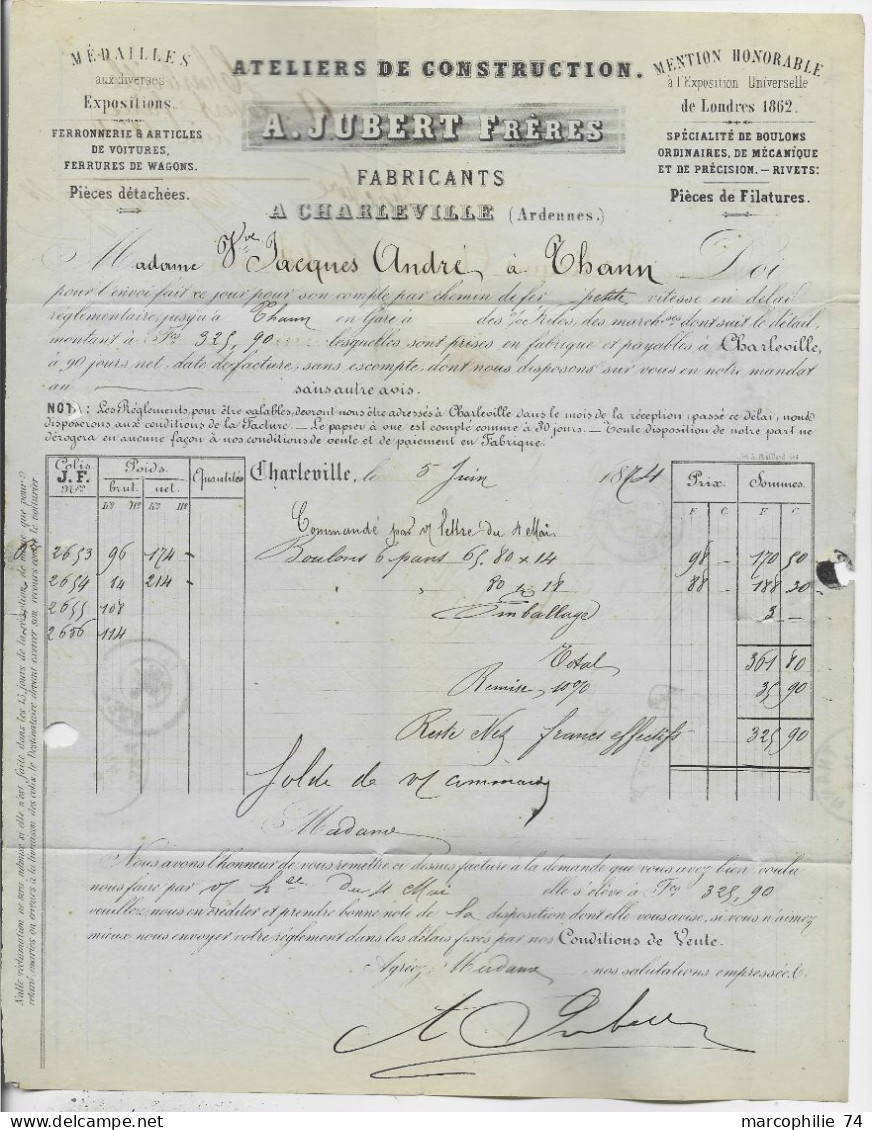 MÉDAILLES
aux diverses
Expositions.
FERRONNERIE & ARTICLES
DE VOITURES,
FERRURES DE WAGONS.
Pièces détachées.
ATELIERS DE CONSTRUCTION.
A. JUBERT FRÈRES
FABRICANTS
A CHARLEVILLE (Ardennes.)
MENTION HONORABLE
à l'Exposition Universelle
de Londres 1862.
SPÉCIALITÉ DE BOULONS
ORDINAIRES, DE MÉCANIQUE
ET DE PRÉCISION. — RIVETS:
Pièces de Filatures.
Madame Vve Jacques André à Thann Doi
pour l'envoi fait ce jour pour son compte par chemin de fer petite vitesse en délai
réglementaire, jusqu'à Thann en Gare à des % Kilos, des marchses dont suit le détail,
montant à Fcs 325,90 lesquelles sont prises en fabrique et payables à Charleville,
à 90 jours net, date de facture, sans escompte, dont nous disposons sur vous en notre mandat
au sans autre avis.
NOTA: Les Réglements, pour être valables, devront nous être adressés à Charleville dans le mois de la réception; passé ce délai, nous
disposerons aux conditions de la Facture. — Le papier à vue est compté comme à 30 jours. — Toute disposition de notre part ne
dérogera en aucune façon à nos conditions de vente et de paiement en Fabrique.
Colis. J.F. Nos Poids. brut. net. Quantités Charleville, le 5 Juin 1874 Prix. F. C. Sommes. F. C.
Commande par v/ lettre du 4 Mai
2653 96 174 - Boulons 6 pans 65.80 x 14 98 - 170 50
2654 84 214 - " " 80 x 18 88 - 188 30
2655 108 Emballage 3 -
2656 114
Total 361 80
Remise 10% 35 90
Reste Net francs effectifs 325 90
Solde de v/ commande
Madame
Nous avons l'honneur de vous remettre ci dessus facture à la demande que vous avez bien voulu
nous faire par v/ du 4 Mai elle s'élève à Fcs 325,90
veuillez nous en créditer et prendre bonne note de la disposition dont elle vous avise, si vous n'aimez
mieux nous envoyer votre réglement dans les délais fixés par nos Conditions de Vente.
Agréez, Madame nos salutations empressées.
A Jubert
Nulle réclamation ne sera admise si elle n'est faite dans les 15 jours de la réception, de même que pour
retard, avaries ou erreurs à la livraison des colis, le Destinataire devant exercer son recours contre le voiturier
marcophilie 74